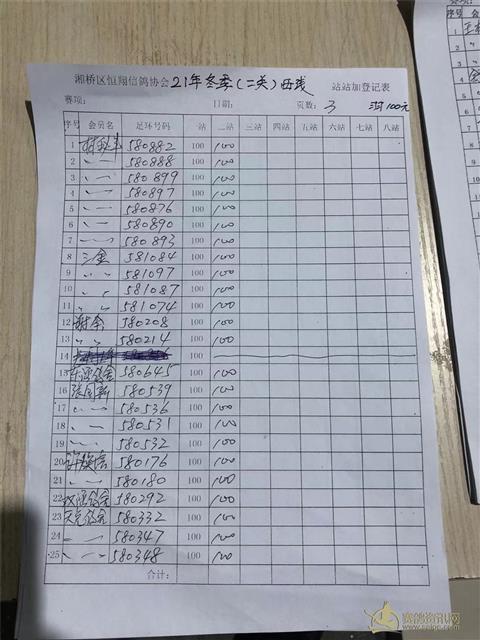 湘桥区恒翔信鸽协会21年冬季(二关)西线 站站加登记表
赛项: 日期: 页数: 3 満100元
序号 会员名 足环号码 一站 二站 三站 四站 五站 六站 七站 八站
1 580882 100 100
2 〃 580888 100 100
3 〃 580899 100 100
4 〃 580897 100 100
5 〃 580876 100 100
6 〃 580890 100 100
7 〃 580893 100 100
8 三金 581084 100 100
9 〃 581097 100 100
10 〃 581087 100 100
11 〃 581074 100 100
12 谢余 580208 100 100
13 〃 580214 100 100
14 100
15 580645 100 100
16 张国新 580539 100 100
17 〃 580536 100 100
18 〃 580531 100 100
19 〃 580532 100 100
20 580176 100 100
21 〃 580180 100 100
22 580292 100 100
23 580332 100 100
24 〃 580347 100 100
25 〃 580348 100 100
合计:
序号
1
2
3
4
5
6
7
8
9
10
赛鸽资讯网